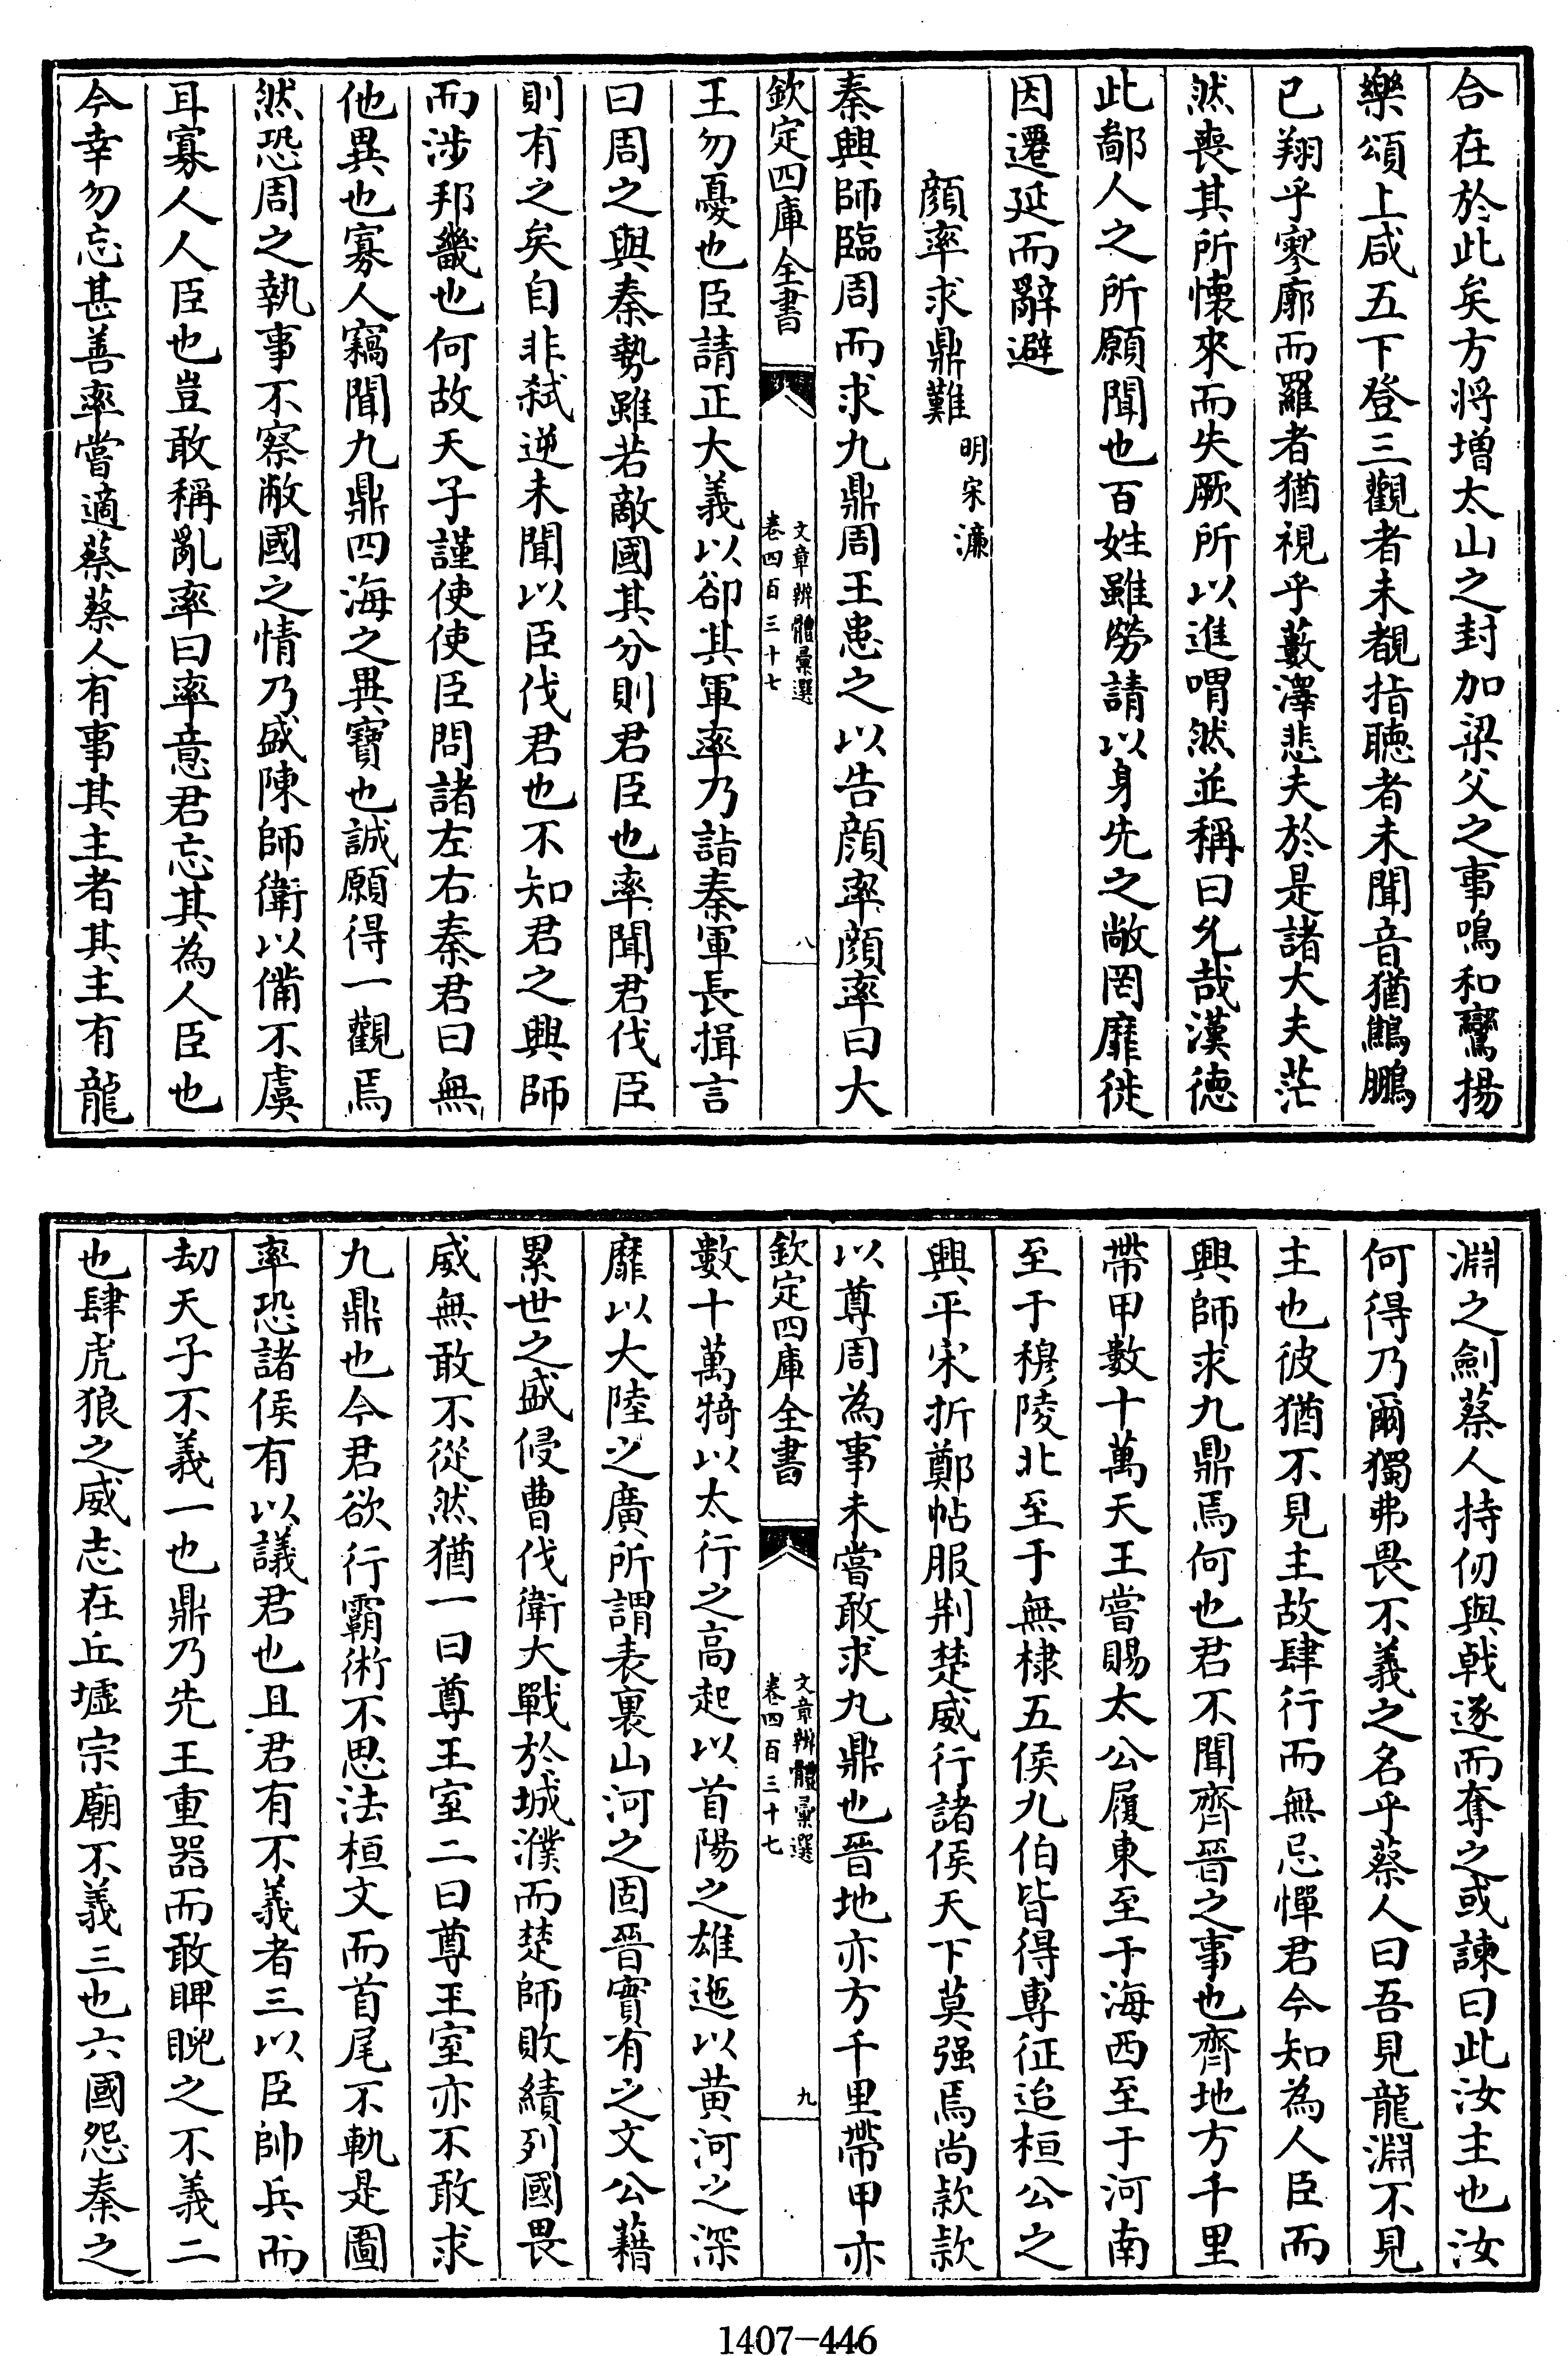 合在於此矣方將增太山之封加梁父之事鳴和鸞揚
樂頌上咸五下登三觀者未覩指聴者未聞音猶鷦鵬
已翔乎寥廓而羅者猶視乎藪澤悲夫於是諸大夫茫
然喪其所懐來而失厥所以進喟然並稱曰允哉漢徳
此鄙人之所願聞也百姓雖勞請以身先之敞罔靡徙
因遷延而辭避
顔率求鼎難
明宋濂
秦興師臨周而求九鼎周王患之以告顔率顔率曰大
欽定四庫全書
文章辨體彚選
卷四百三十七
八
王勿憂也臣請正大義以卻其軍率乃詣秦軍長揖言
曰周之與秦勢雖若敵國其分則君臣也率聞君伐臣
則有之矣自非弑逆未聞以臣伐君也不知君之興師
而涉邦畿也何故天子謹使使臣問諸左右秦君曰無
他異也寡人竊聞九鼎四海之異寶也誠願得一觀焉
然恐周之執事不察敝國之情乃盛陳師衛以備不虞
耳寡人人臣也豈敢稱亂率曰率意君忘其為人臣也
今幸勿忘甚善率嘗適蔡蔡人有事其主者其主有龍
淵之劍蔡人持仞與戟逐而奪之或諫曰此汝主也汝
何得乃爾獨弗畏不義之名乎蔡人曰吾見龍淵不見
主也彼猶不見主故肆行而無忌憚君今知為人臣而
興師求九鼎焉何也君不聞齊晉之事也齊地方千里
帶甲數十萬天王嘗賜太公履東至于海西至于河南
至于穆陵北至于無棣五侯九伯皆得專征迨桓公之
興平宋折鄭帖服荆楚威行諸侯天下莫强焉尚款款
以尊周為事未嘗敢求九鼎也晉地亦方千里帶甲亦
欽定四庫全書
文章辨體彚選
卷四百三十七
九
數十萬犄以太行之高起以首陽之雄迤以黄河之深
靡以大陸之廣所謂表裏山河之固晉實有之文公藉
累世之盛侵曹伐衛大戰於城濮而楚師敗績列國畏
威無敢不從然猶一曰尊王室二曰尊王室亦不敢求
九鼎也今君欲行霸術不思法桓文而首尾不軌是圖
率恐諸侯有以議君也且君有不義者三以臣帥兵而
刧天子不義一也鼎乃先王重器而敢睥睨之不義二
也肆虎狼之威志在丘墟宗廟不義三也六國怨秦之
1407-446